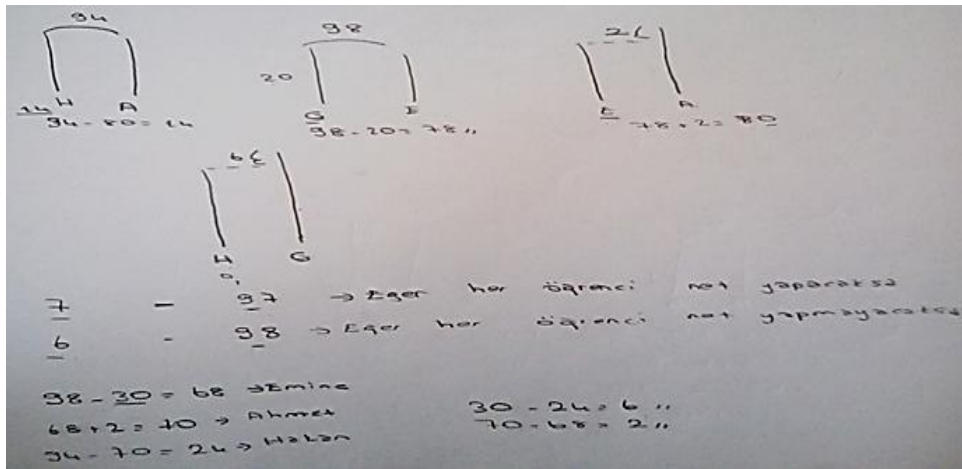 94
H A
14
94 - 80 = 14
98
20
G E
98 - 20 = 78 ,,
2{
E A
78 + 2 = 80
6{
H G
0,
7 - 97 → Eger her ögrenci not yaparaksa
6 - 98 → Eger her ögrenci not yapmayacaksa
98 - 30 = 68 → Emine
68 + 2 = 70 → Ahmet
94 - 70 = 24 → Hakan
30 - 24 = 6 ,,
70 - 68 = 2 ,,